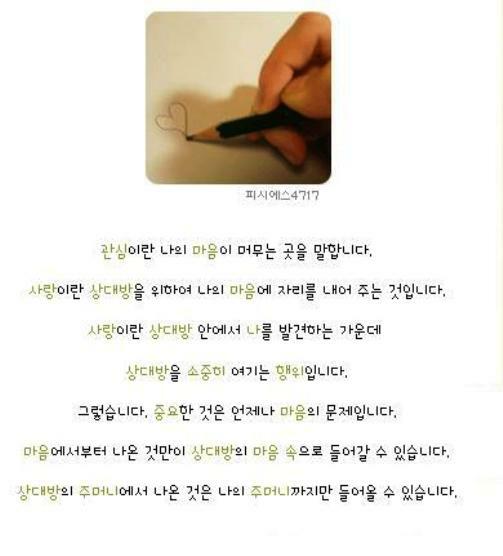 피시에스4717
관심이란 나의 마음이 머무는 곳을 말합니다.
사랑이란 상대방을 위하여 나의 마음에 자리를 내어 주는 것입니다.
사랑이란 상대방 안에서 나를 발견하는 가운데
상대방을 소중히 여기는 행위입니다.
그렇습니다. 중요한 것은 언제나 마음의 문제입니다.
마음에서부터 나온 것만이 상대방의 마음 속으로 들어갈 수 있습니다.
상대방의 주머니에서 나온 것은 나의 주머니까지만 들어올 수 있습니다.